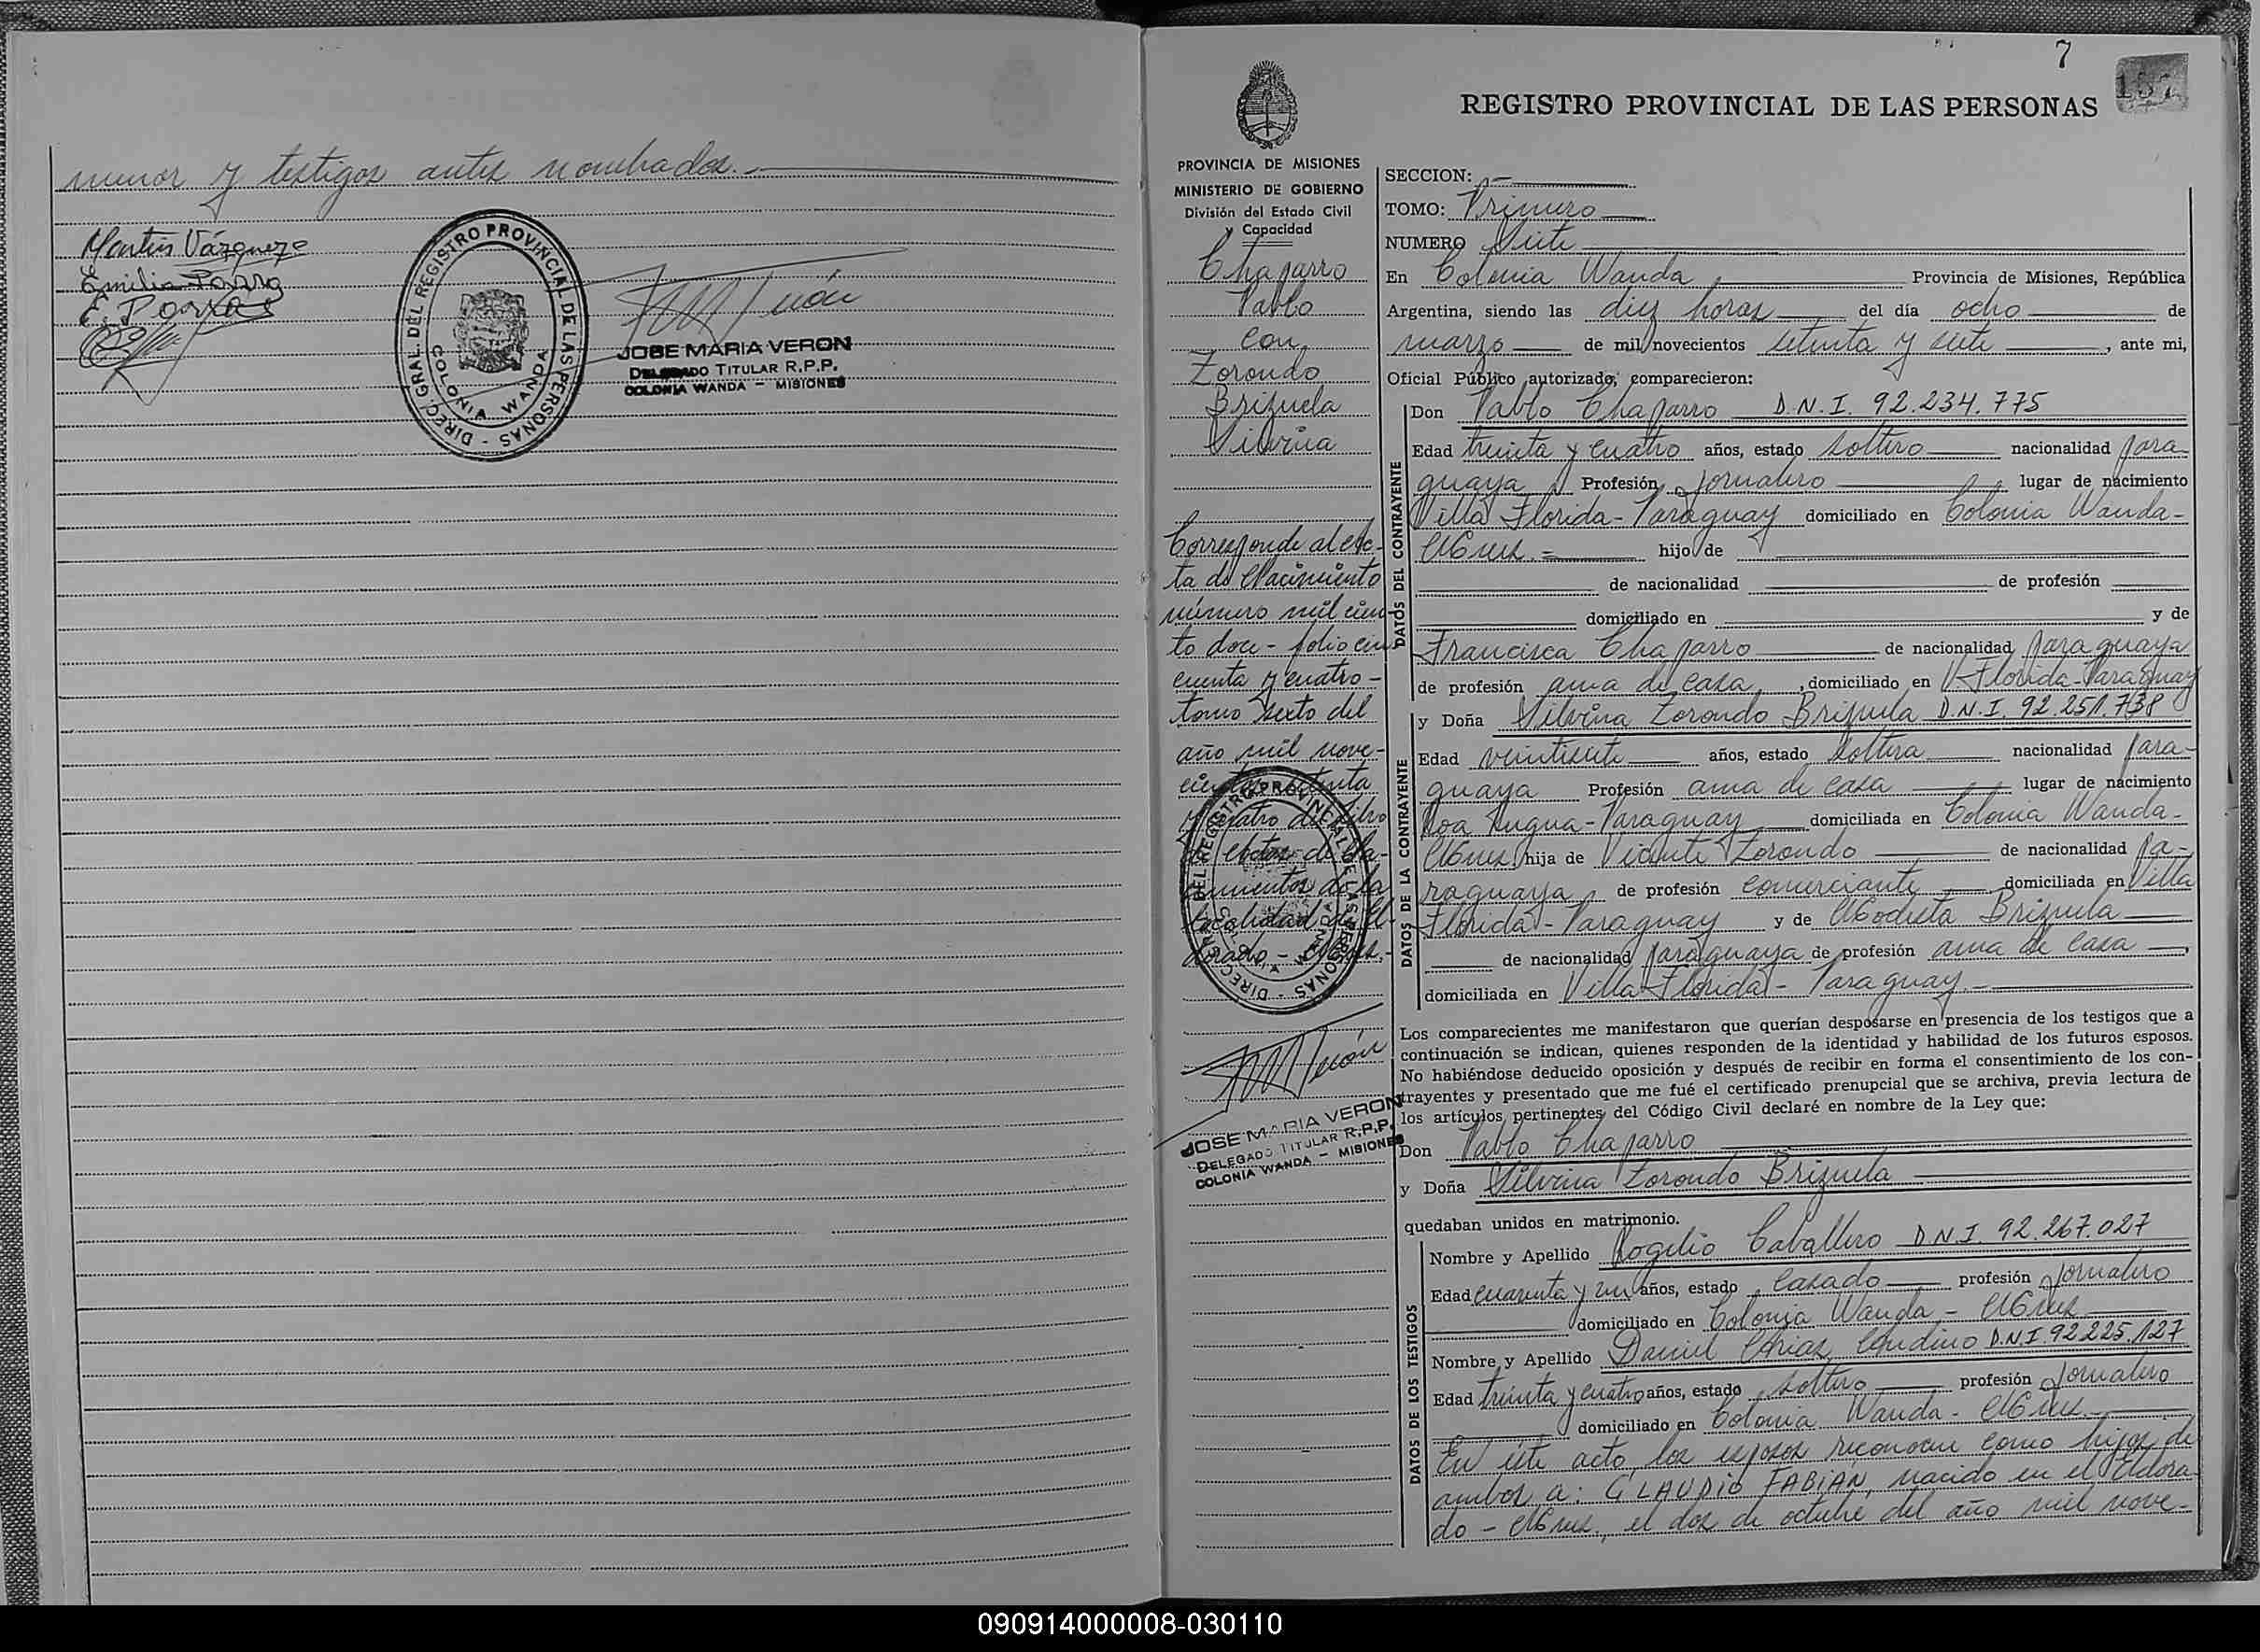 menor y testigos antes nombrados.-
Martin Vázqueze
Emilia Porra
E. Porras
DIREC. GRAL. DEL REGISTRO PROVINCIAL DE LAS PERSONAS -
COLONIA WANDA
JOSE MARIA VERON
DELEGADO TITULAR R.P.P.
COLONIA WANDA - MISIONES
7
REGISTRO PROVINCIAL DE LAS PERSONAS
PROVINCIA DE MISIONES
MINISTERIO DE GOBIERNO
División del Estado Civil
y Capacidad
Chaparro
Pablo
con
Zorondo
Brizuela
Silvina
Corresponde al Ac-
ta de Nacimiento
número mil cien-
to doce - folio cin-
cuenta y cuatro -
tomo sexto del
año mil nove-
cientos setenta
y cuatro del Libro
de Actas de Na-
cimientos de la
localidad de El-
dorado, - Mnes.-
DIREC. GRAL. DEL REGISTRO PROVINCIAL DE LAS PERSONAS -
COLONIA WANDA
JOSE MARIA VERON
DELEGADO TITULAR R.P.P.
COLONIA WANDA - MISIONES
SECCION: -
TOMO: Primero
NUMERO Siete
En Colonia Wanda Provincia de Misiones, República
Argentina, siendo las diez horas del día ocho de
marzo de mil novecientos setenta y siete, ante mi,
Oficial Público autorizado, comparecieron:
DATOS DEL CONTRAYENTE
Don Pablo Chaparro D.N.I. 92.234.775
Edad treinta y cuatro años, estado soltero nacionalidad para-
guaya Profesión Jornalero lugar de nacimiento
Villa Florida-Paraguay domiciliado en Colonia Wanda-
Mnes.= hijo de
de nacionalidad de profesión
domiciliado en y de
Francisca Chaparro de nacionalidad paraguaya
de profesión ama de casa, domiciliado en V. Florida-Paraguay
DATOS DE LA CONTRAYENTE
y Doña Silvina Zorondo Brizuela D.N.I. 92.251.738
Edad veintisiete años, estado soltera nacionalidad para-
guaya Profesión ama de casa lugar de nacimiento
Roa Rugua-Paraguay domiciliada en Colonia Wanda-
Mnes. hija de Vicente Zorondo de nacionalidad pa-
raguaya de profesión comerciante domiciliada en Villa
Florida-Paraguay y de Modesta Brizuela
de nacionalidad paraguaya de profesión ama de casa,
domiciliada en Villa Florida-Paraguay.-
Los comparecientes me manifestaron que querían desposarse en presencia de los testigos que a
continuación se indican, quienes responden de la identidad y habilidad de los futuros esposos.
No habiéndose deducido oposición y después de recibir en forma el consentimiento de los con-
trayentes y presentado que me fué el certificado prenupcial que se archiva, previa lectura de
los artículos pertinentes del Código Civil declaré en nombre de la Ley que:
Don Pablo Chaparro
y Doña Silvina Zorondo Brizuela
quedaban unidos en matrimonio.
DATOS DE LOS TESTIGOS
Nombre y Apellido Rogelio Caballero D.N.I. 92.267.027
Edad cuarenta y un años, estado casado profesión Jornalero
domiciliado en Colonia Wanda - Mnes
Nombre y Apellido Daniel Arias Cendino D.N.I 92.225.127
Edad treinta y cuatro años, estado soltero profesión Jornalero
domiciliado en Colonia Wanda - Mnes.-
En este acto los esposos reconocen como hijos de
ambos a: CLAUDIO FABIAN, nacido en el Eldora-
do - Mnes., el dos de octubre del año mil nove-
090914000008-030110